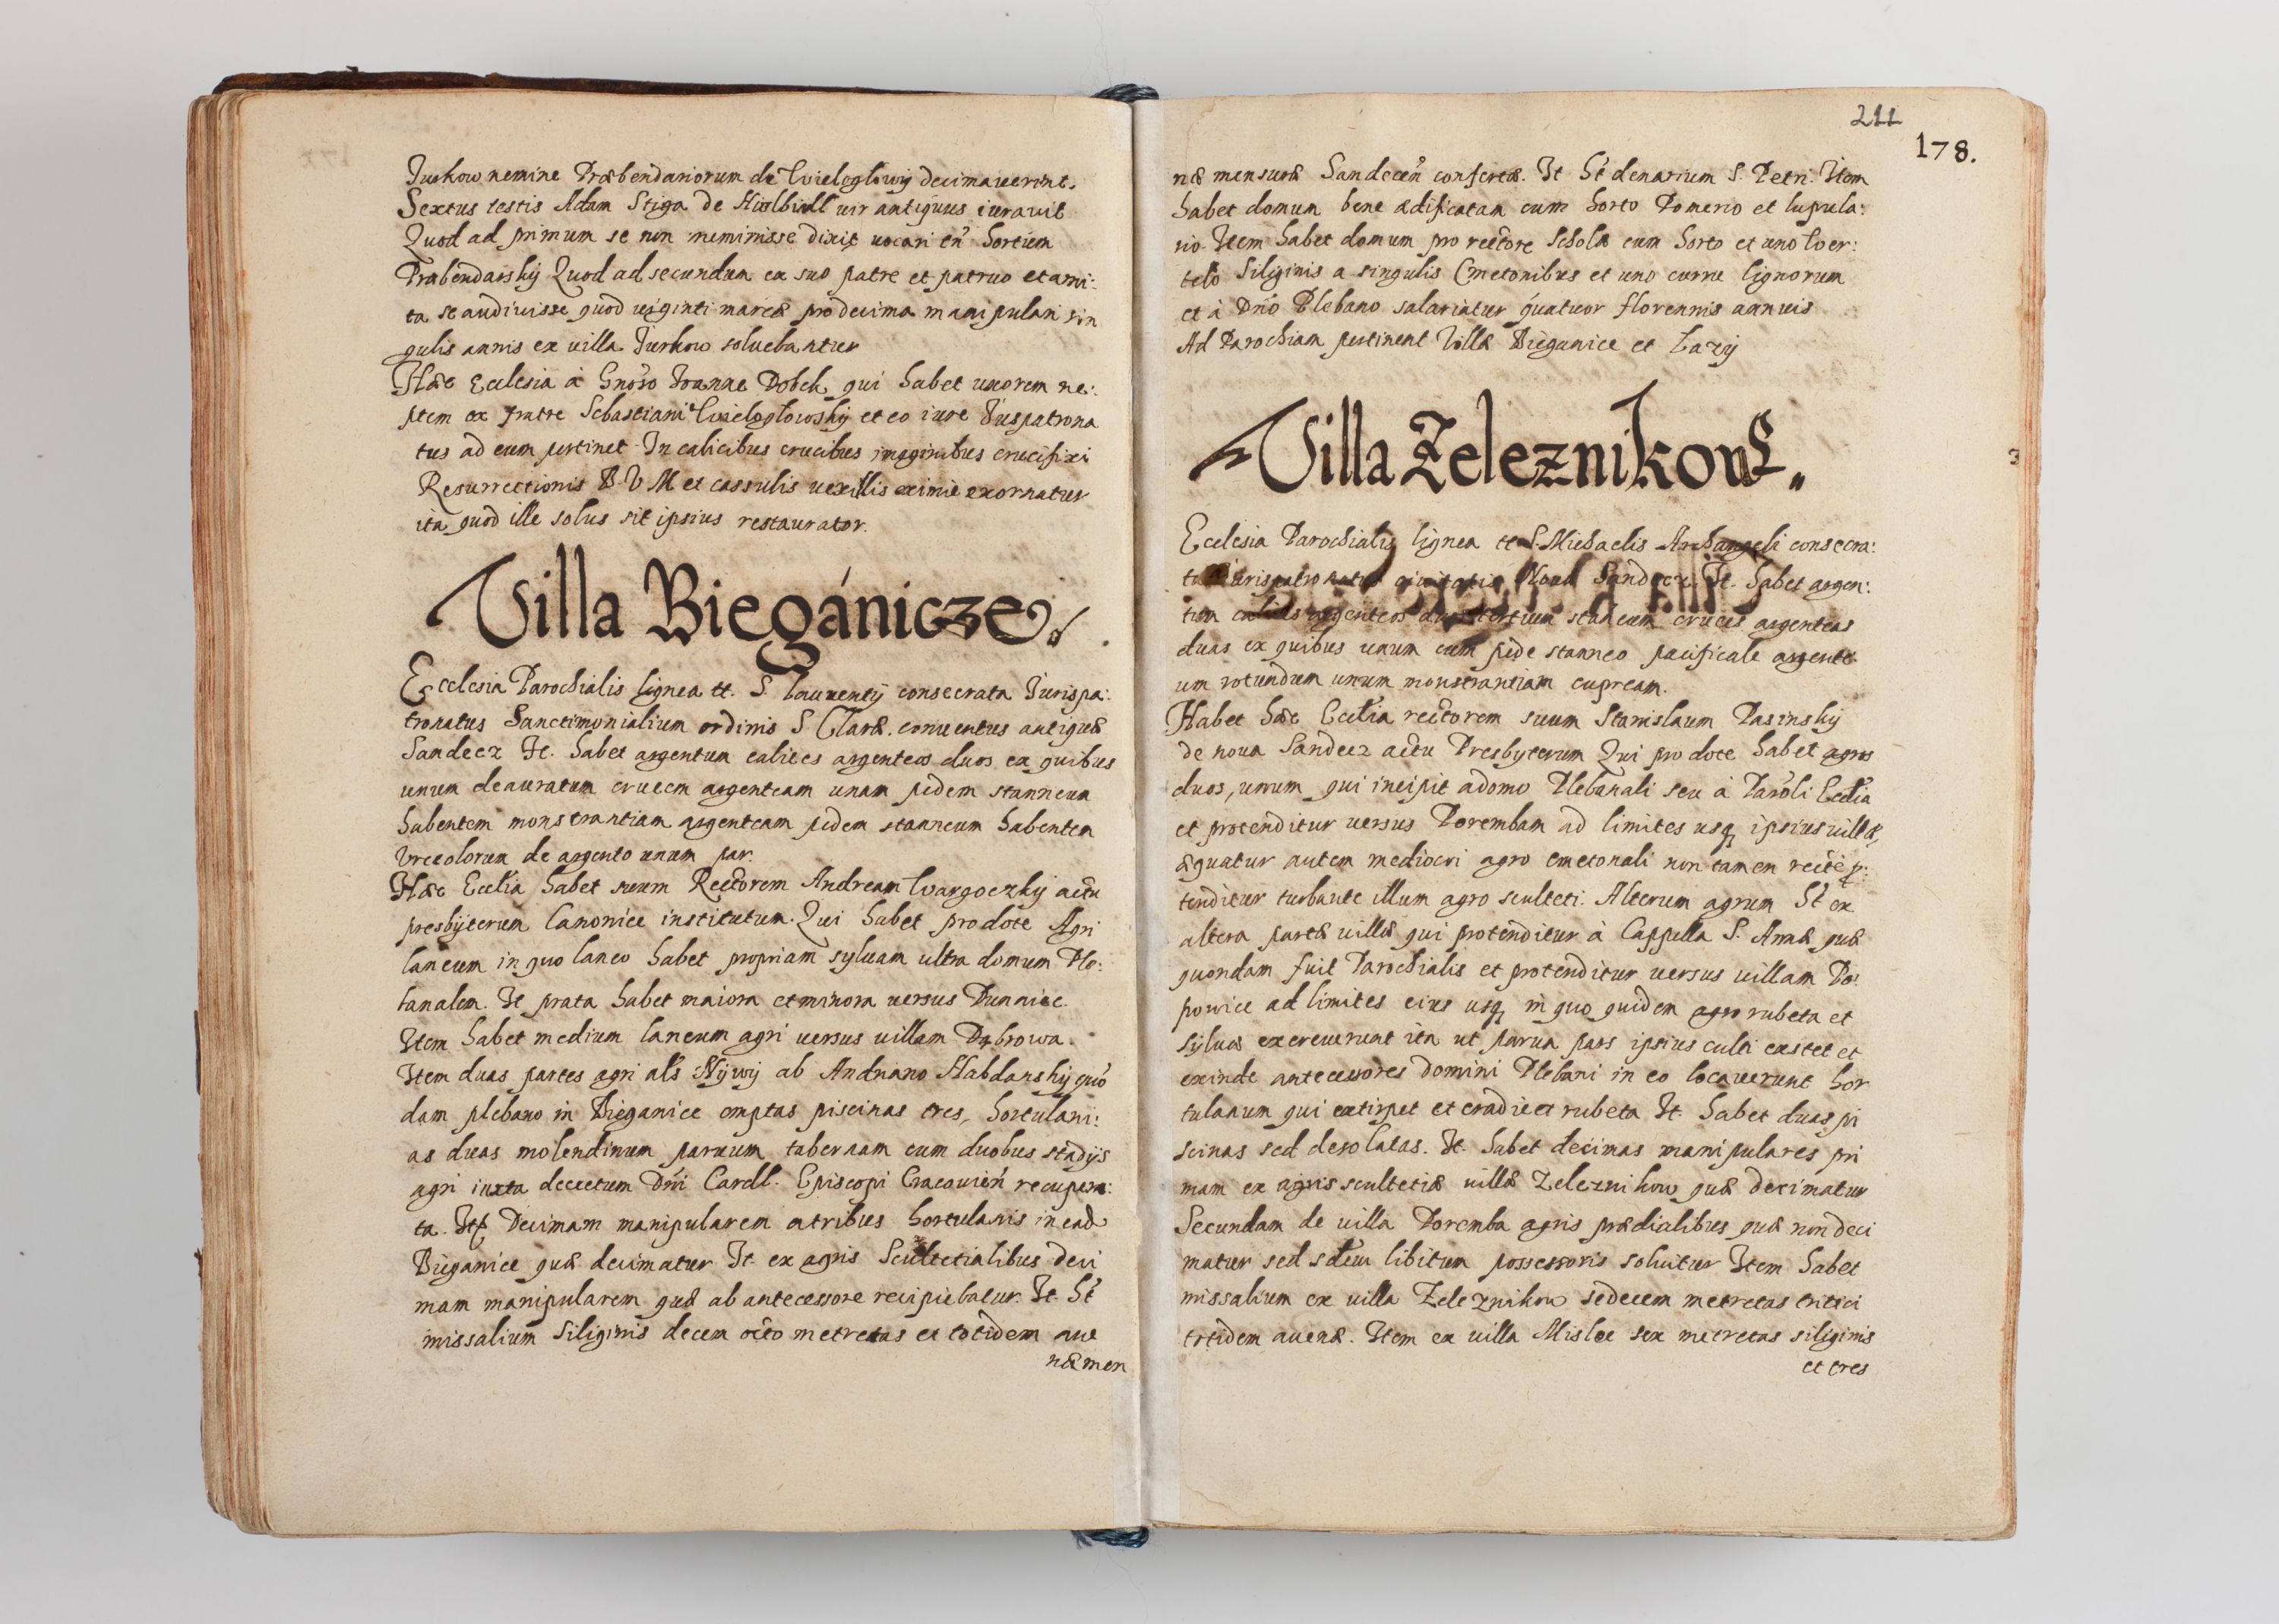 Jurkow nemine Præbendariorum de Wieloglowij decimauerunt.
Sextus testis Adam Stiga de vir antiquus iurauit
Quod ad primum se non meminisse dixit uocari tn̄ hortum
Præbendarskij Quod ad secundum ex suo patre et patruo et ami:
ta se audiuisse quod uiginti marcæ pro decima manipulari sin
gulis annis ex uilla Jurkow soluebantur
Hæc Ecclesia à Gnoso Joanne Dobek qui habet uxorem ne:
ptem ex fratre Sebastiani Wieloglowskij et eo iure Juspatrona
tus ad eum pertinet. In calicibus crucibus imaginibus crucifixi
Resurrectionis B. V M et cassulis uexillis eximie exornatur
ita quod ille solus sit ipsius restaurator.
Villa Biegánicze
Ecclesia Parochialis lignea tt. S. Laurentij consecrata Jurispa:
tronatus Sanctimonialium ordinis S. Claræ. conuentus antiquæ
Sandecz It. habet argentum calices argenteos duos ex quibus
unum deauratum crucem argenteam unam pedem stanneum
habentem monstrantiam argenteam pedem stanneum habentem
Vrceolorum de argento unum par.
Hæc Ecclia habet suum Rectorem Andream Wargoczkij actu
presbyterum Canonice institutum. Qui habet pro dote Agri
laneum in quo laneo habet propriam syluam ultra domum Ple:
banalem. It prata habet maiora et minora uersus Dunaiec.
Item habet medium laneum agri uersus uillam Dąbrowa.
Item duas partes agri als Nijwij ab Andriano Habdanskij quo
dam plebano in Bieganice emptas piscinas tres, hortulani:
as duas molendinum paruum tabernam cum duobus stadijs
agri iuxta decretum Dni Cardl. Episcopi Cracouien recupera:
ta. It Decimam manipularem a tribus hortulanis in ead
Bieganice quæ decimatur It. ex agris Scultetialibus deci
mam manipularem quæ ab antecessore recipiebatur. It. ht
missalium Siliginis decem octo metretas et totidem aue
næ men
211
178.
næ mensuræ Sandecen confertæ. It ht denarium S. Petri. Item
habet domum bene ædificatam cum horto Pomerio et lupula:
rio. Item habet domum pro rectore Scholæ cum horto et uno Wer:
telo Siliginis a singulis Cmetonibus et uno curru lignorum
et à Dno Plebano salariatur quatuor florennis annuis
Ad Parochiam pertinent Villæ Bieganice et Lazij
Villa Zeleznikow
Ecclesia Parochialis lignea tt S. Michaelis Archangeli consecra:
ta Jurispatronatus ciuitatis Nouæ Sandecz. It. habet argen:
tum calices argenteos duos tertium stanneum cruces argenteas
duas ex quibus unum cum pede stanneo pacificale argente
um rotundum unum monstrantiam cupream.
Habet hæc Ecclia rectorem suum Stanislaum Pasinskij
de noua Sandecz actu Presbyterum Qui pro dote habet agros
duos, unum qui incipit a domo Plebanali seu à Paroli Ecclia
et protenditur uersus Porembam ad limites usq ipsius uillæ,
æquatur autem mediocri agro cmetonali non tamen recte p:
tenditur turbante illum agro sculteti. Alterum agrum ht ex
altera parte uillæ qui protenditur à Cappella S. Annæ quæ
quondam fuit Parochialis et protenditur uersus uillam Po:
powice ad limites eius usq in quo quidem agro rubeta et
syluæ excreuerunt ita ut parua pars ipsius culti extet et
exinde antecessores domini Plebani in eo locauerunt hor
tulanum qui extirpet et eradicet rubeta It. habet duas pi
scinas sed desolatas. It. habet decimas manipulares pri
mam ex agris scultetiæ uillæ Zeleznikow quæ decimatur
Secundam de uilla Poremba agris prædialibus quæ non deci
matur sed sdum libitum possessoris soluitur Item habet
missalium ex uilla Zeleznikow sedecem metretas tritici
totidem auenæ. Item ex uilla Mislec sex metretas siliginis
et tres